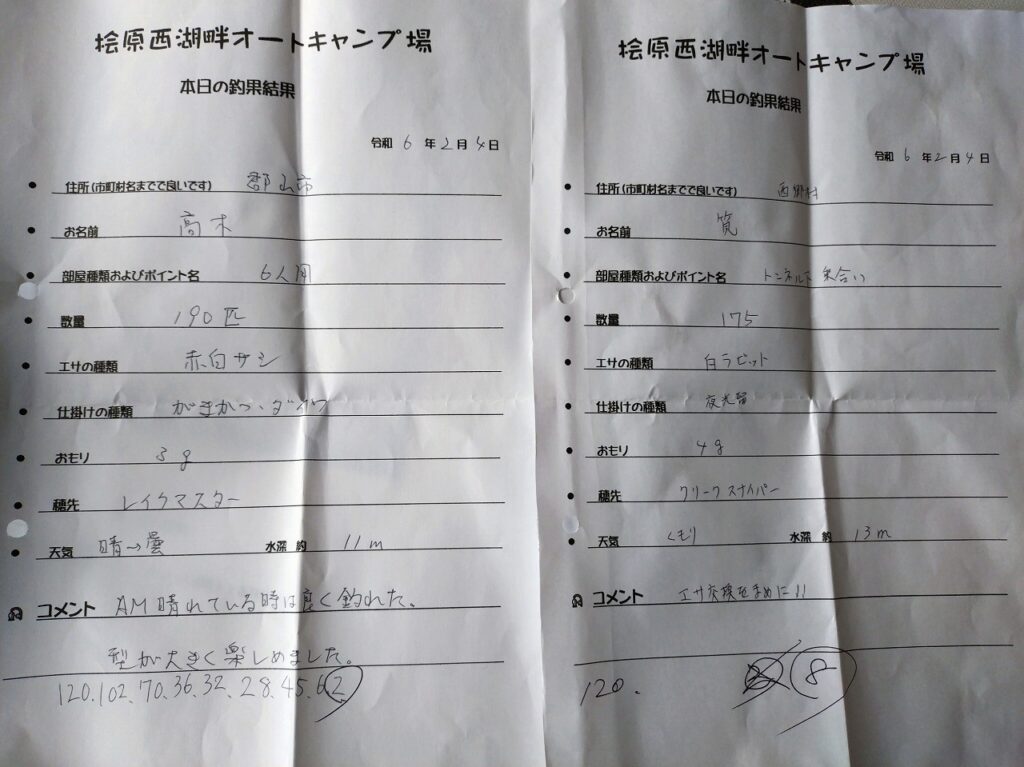 桧原西湖畔オートキャンプ場
本日の釣果結果
令和 6 年 2 月 4 日
住所(市町村名までで良いです) 郡山市
お名前 高木
部屋種類およびポイント名 6人用
数量 190匹
エサの種類 赤白サシ
仕掛けの種類 がまかつ、ダイワ
おもり 3g
穂先 レイクマスター
天気 晴→曇 水深 約 11m
コメント AM晴れている時は良く釣れた。
型が大きく楽しめました。
120.102.70.36.32.28.45.62
桧原西湖畔オートキャンプ場
本日の釣果結果
令和 6 年 2 月 4 日
住所(市町村名までで良いです) 西郷村
お名前
部屋種類およびポイント名 トンネル下 乗合い
数量 175
エサの種類 白ラビット
仕掛けの種類 夜光留
おもり 4g
穂先 クリークスナイパー
天気 くもり 水深 約 13m
コメント エサ交換をまめに!!
120. 8